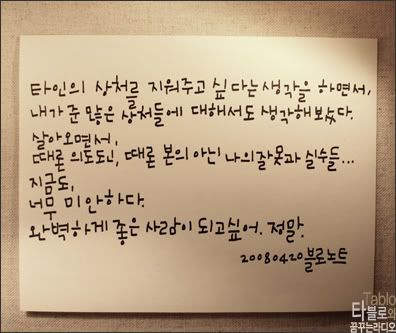 타인의 상처를 지워주고 싶다는 생각을 하면서,
내가 준 많은 상처들에 대해서도 생각해보았다.
살아오면서,
때론 의도된, 때론 본의 아닌 나의 잘못과 실수들...
지금도,
너무 미안하다.
완벽하게 좋은 사람이 되고싶어. 정말.
20080420 블로노트
Tablo
타블로와
꿈꾸는라디오